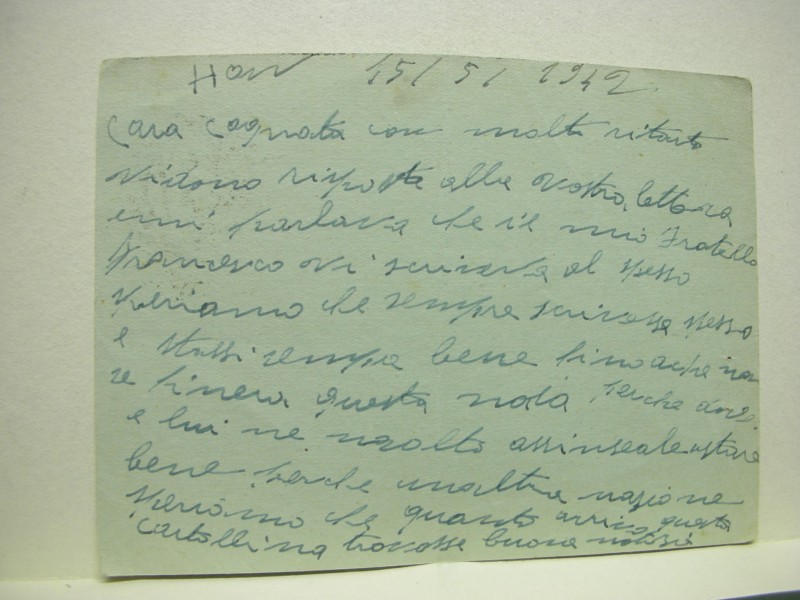 15/5/1942
Cara Cognata con molto ritarto
vidono risposta alla vostra lettera
emi parlava che i'l mio Fratello
Francesco vi scriveva al spesso
speriamo che sempre scrivesse spesso
e stassi sempre bene
se finera questa perche
e lui ne molto
bene perche unaltra nazione
speriamo che quanto arriva questa
cartollina trovasse buone notisie